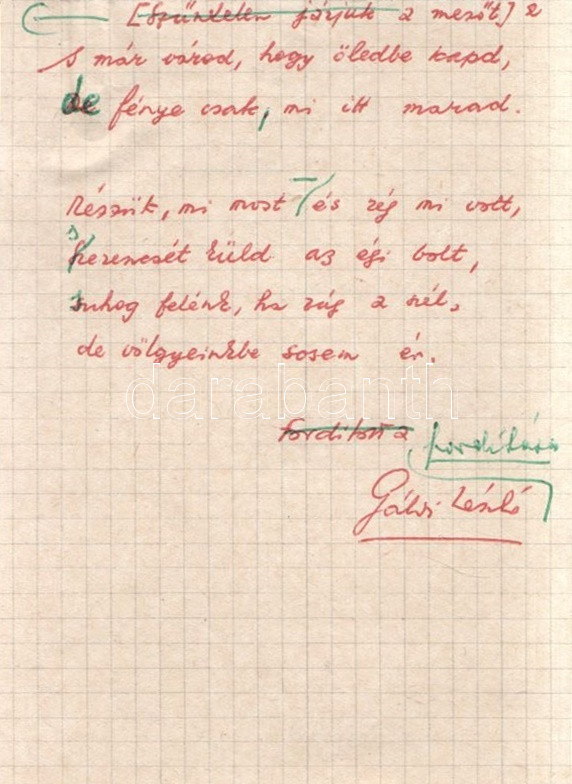 [Szüntelen járjuk a mezőt]
S már várod, hogy öledbe kapd,
de fénye csak, mi itt marad.
Részük, mi most és rég mi volt,
szerencsét küld az égi bolt,
suhog felénk, ha vág a szél,
de völgyeinkbe sosem ér.
Fordította fordítása
Gálsi László
darabanth